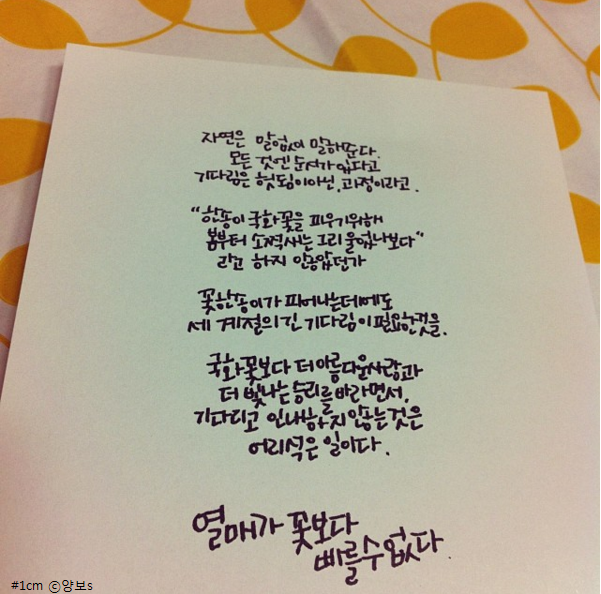 자연은 말없이 말해준다.
모든 것엔 순서가 있다고
기다림은 헛됨이아닌, 과정이라고.
"한송이 국화꽃을 피우기위해
봄부터 소쩍새는 그리 울었나보다"
라고 하지 않았던가
꽃한송이가 피어나는데에도
세 계절의긴 기다림이필요한것을.
국화꽃보다 더아름다운사랑과
더 빛나는 승리를 바라면서,
기다리고 인내하지 않는것은
어리석은 일이다.
열매가 꽃보다
빠를수없다.
#1cm ⓒ양보s